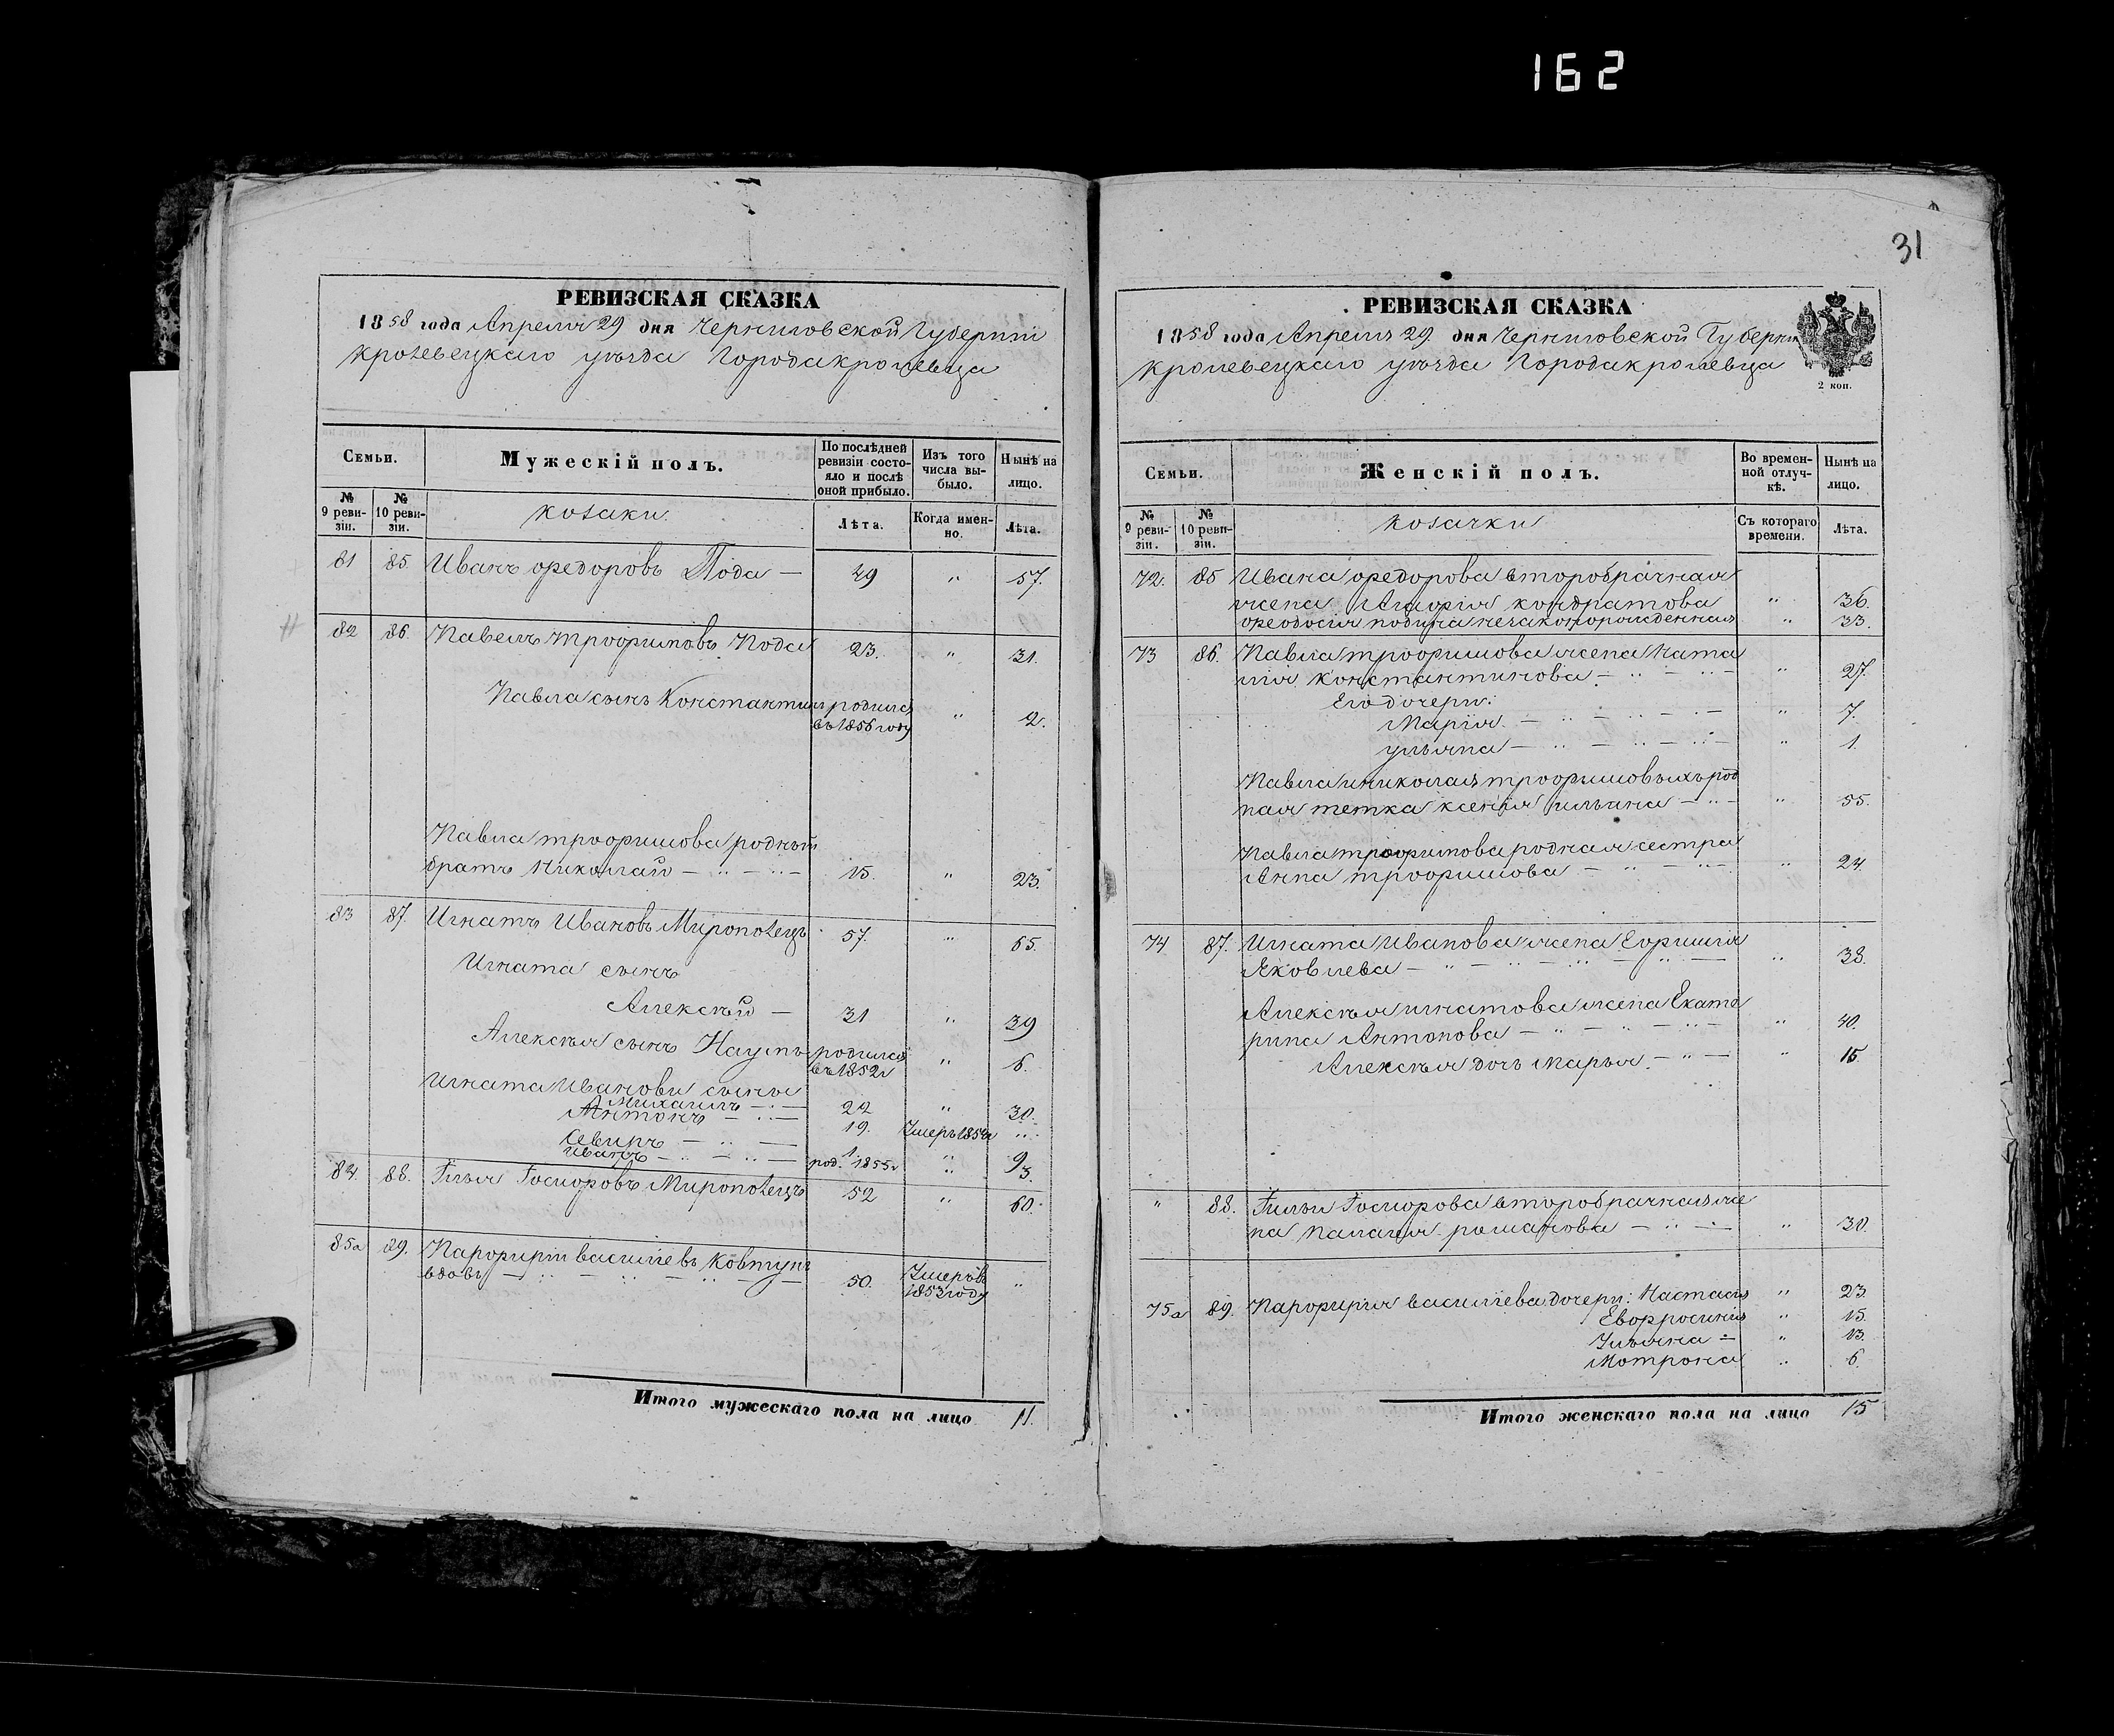 162
31
РЕВИЗСКАЯ СКАЗКА
1858 года Апреля 29 дня Черниговской Губернiи
Кролевецкаго уѣзда Города Кролевца
Семьи.
Мужескій полъ.
По послѣдней ревизіи состояло и послѣ оной прибыло.
Изъ того числа выбыло.
Нынѣ на лицо.
№ 9 ревизіи.
№ 10 ревизіи.
козаки.
Лѣта.
Когда именно.
Лѣта.
81 85. Иванъ Федоровъ Пода — 49 " 57.
82 86. Павелъ Трофимовъ Пода 23. " 31.
Павла сынъ Константин родился въ 1856 году " 2.
Павла Трофимова родный
братъ Николай — " — " — 15. " 23.
83 87. Игнатъ Ивановъ Мирополецъ 57. " 65.
Игната сынъ
Алексѣй — 31 " 39
Алексѣя сынъ Наумъ родился въ 1852г " 6.
Игната Иванова сыны
Михаилъ — " — 22 " 30.
Антонъ — " — 19. Умеръ 185 г "
Севиръ — " — 1. " 9
Иванъ — " — " — род. 1855г " 3.
84. 88. Илья Мирополецъ 52 " 60.
85а 89. Парфирiй Василіевъ Ковтунъ
вдовъ — " — " — " — 50. Умеръ въ 1853 году "
Итого мужескаго пола на лицо 11.
РЕВИЗСКАЯ СКАЗКА
1858 года Апреля 29. дня Черниговской Губерни
Кролевецкаго уѣзда Города Кролевца
2 коп.
Семьи.
Женскій полъ.
Во временной отлучкѣ.
Нынѣ на лицо.
№ 9 ревизіи.
№ 10 ревизіи.
козачки
Съ котораго времени.
Лѣта.
72. 85 Ивана Федорова второбрачная
жена Кондратова " 36.
Феодосия незаконорожденная " 33.
73 86. Павла Трофимова жена Ната
лiя Константинова — " — " — " 27.
Его дочери:
Марiя — " — " — " — " 7.
Ульяна — " — " — " — " 1.
Павла и Николая Трофимовыхъ род
ная тетка Ксенiя Ильина — " — " 55.
Павла Трофимова родная сестра
Анна Трофимова — " — " — " 24.
74 87. Игната Иванова жена Ефимiя
Яковлева — " — " — " — " — " 38.
Алексѣя Игнатова жена Екате
рина Антонова — " — " — " — " 40.
Алексѣя дочь Марья — " — " 15.
" 88. Ильи второбрачная же
на Палагiя Романова — " — " 30.
75а 89. Парфирiя Василіева дочери: Настасiя " 23.
Евфросинiя " 15.
Ульяна — " 13.
Мотрона " 6.
Итого женскаго пола на лицо 15